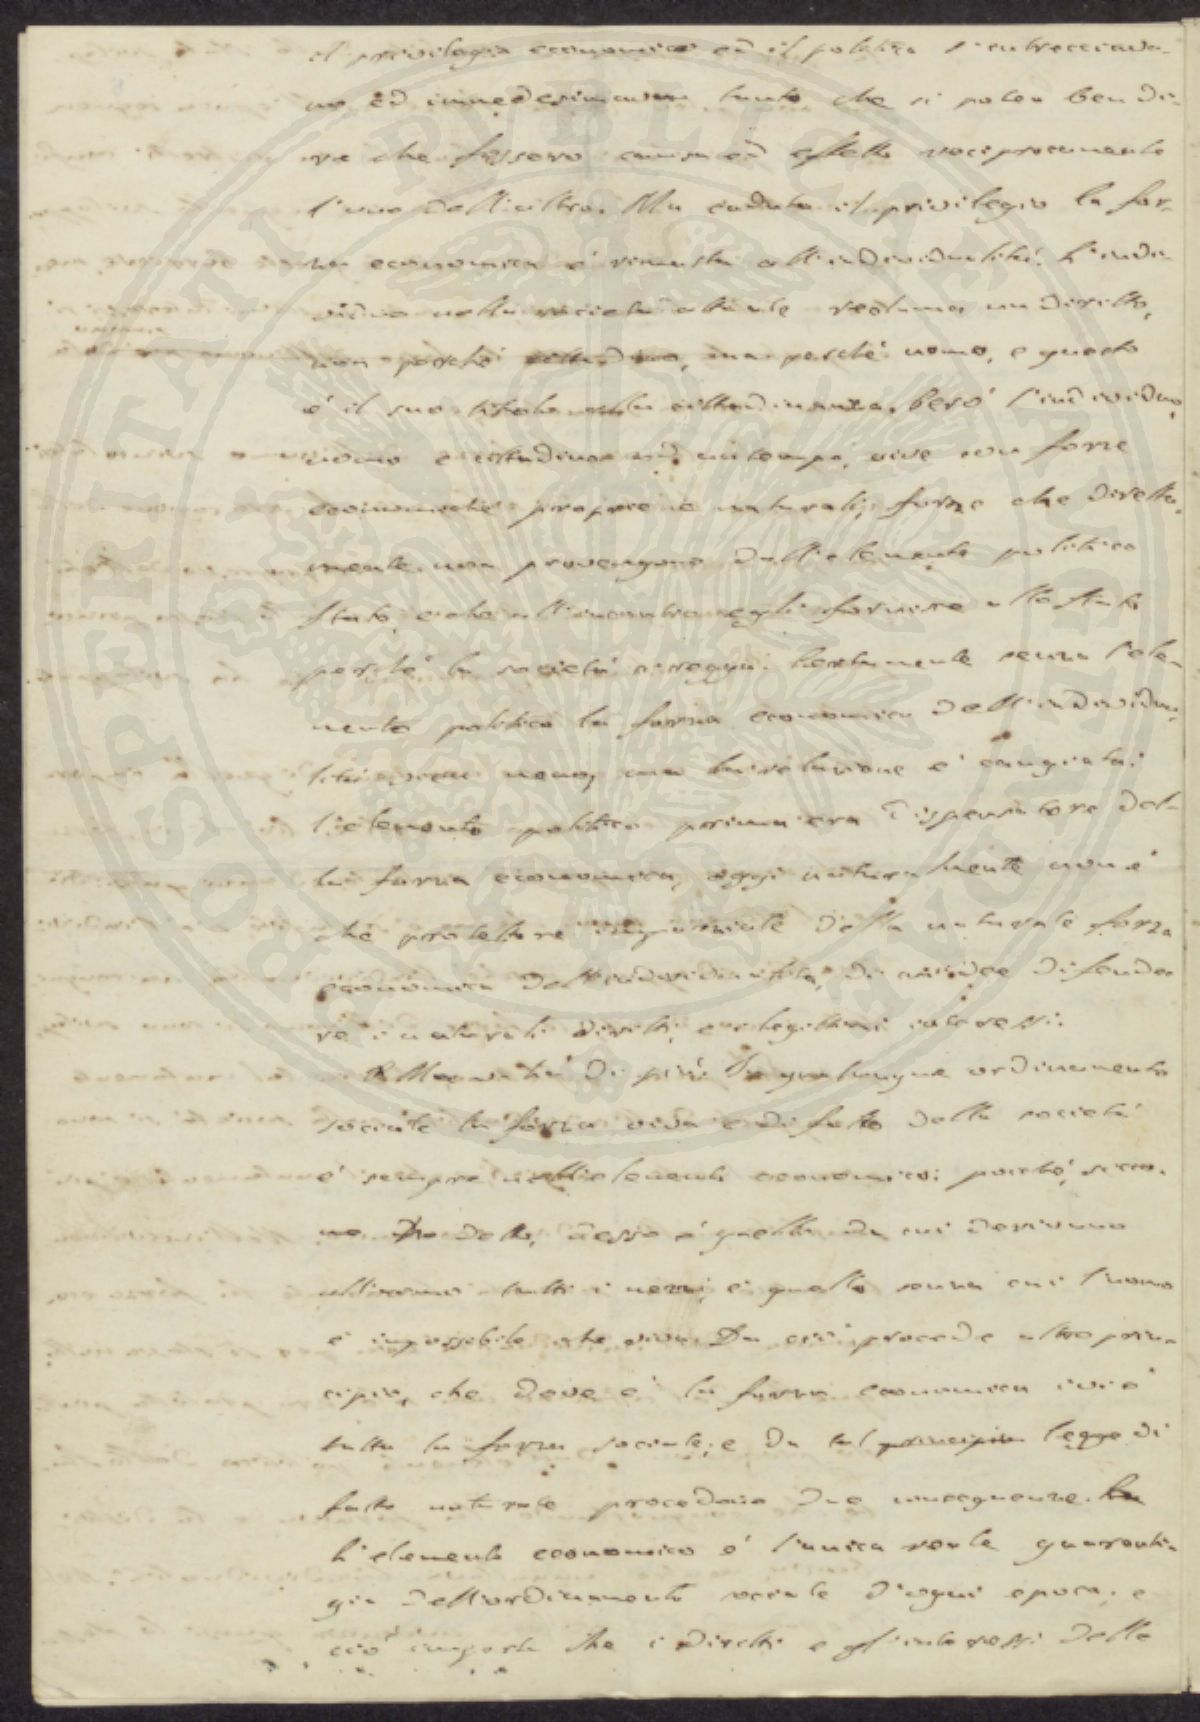 il privilegio economico ed il politico s'intrecciava-
no ed immedesimavan tanto che si potea ben di-
re che fossero causa ed effetto reciprocamente
l'uno dell'altro. Ma caduto il privilegio la for-
za economica è rimasta all'individualità. L'indi-
viduo nella società attuale reclama un diritto,
non perchè cittadino, ma perchè uomo, e questo
è il suo titolo alla cittadinanza. Però l'individuo,
uomo e cittadino ad un tempo, vive con forze
economiche proprie e naturali, forze che diretta-
mente non provengono dall'elemento politico
Stato, e che all'incontro egli fornisce allo Stato
perchè la società si regga. Certamente senza l'ele-
mento politico la forza economica dell'individua-
lità vien meno, ma la relazione è cangiata:
l'elemento politico prima era dispensatore del-
la forza economica, oggi naturalmente non è
che protettore imparziale della naturale forza
economica dell'individualità, di cui dee difende-
re i naturali diritti, e i legittimi interessi.
Avvi di più. In qualunque ordinamento
sociale la forza viva e di fatto della società
è sempre nell'elemento economico: poichè, sicco-
me ho detto, desso è quello da cui derivano
all'uomo tutti i mezzi, è quello senza cui l'uomo
è impossibile che viva. Da ciò procede altro prin-
cipio, che dove è la forza economica ivi è
tutta la forza sociale; e da tal principio legge di
fatto naturale procedono due conseguenze. La
L'elemento economico è l'unica reale guarenti-
gia dell'ordinamento sociale d'ogni epoca; e
ciò importa che i diritti e gl'interessi delle
PROSPERITATI PUBLICAE AUGENDAE